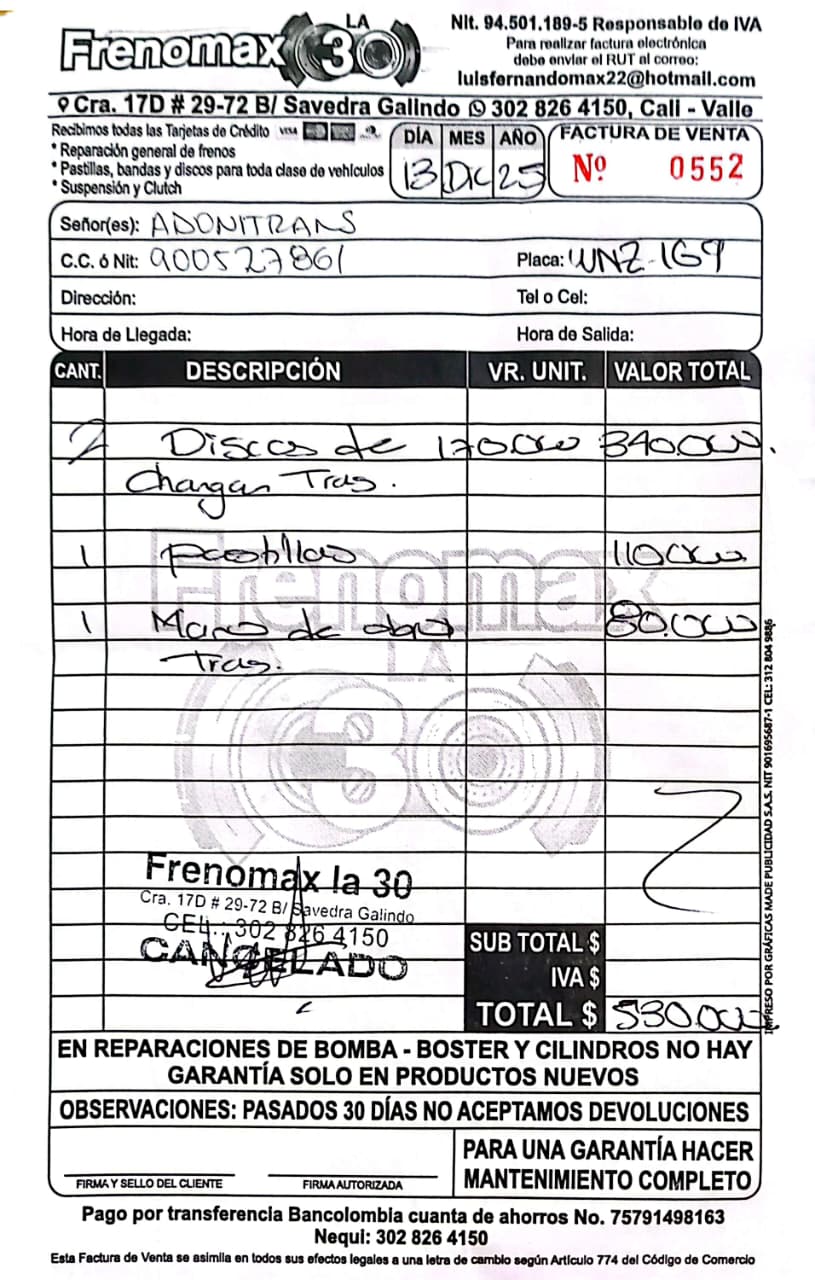 Frenomax LA 30
Nit. 94.501.189-5 Responsable de IVA
Para realizar factura electrónica
debe enviar el RUT al correo:
luisfernandomax22@hotmail.com
Cra. 17D # 29-72 B/ Savedra Galindo 302 826 4150, Cali - Valle
Recibimos todas las Tarjetas de Crédito VISA
* Reparación general de frenos
* Pastillas, bandas y discos para toda clase de vehículos
* Suspensión y Clutch
DÍA MES AÑO
13 DIC 25
FACTURA DE VENTA
Nº 0552
Señor(es): ADONITRANS
C.C. ó Nit: 900527861 Placa: WNZ-169
Dirección: Tel o Cel:
Hora de Llegada: Hora de Salida:
CANT. DESCRIPCIÓN VR. UNIT. VALOR TOTAL
2 Discos de 170.000 340.000.
Changan Tras.
1 pastillas 110.000
1 Mano de obra 80.000
Tras.
Frenomax
LA
30
Frenomax la 30
Cra. 17D # 29-72 B/ Savedra Galindo
CEL.: 302 826 4150
CANCELADO
SUB TOTAL $
IVA $
TOTAL $ 530.000
IMPRESO POR GRÁFICAS MADE PUBLICIDAD S.A.S. NIT 901695687-1 CEL: 312 804 9886
EN REPARACIONES DE BOMBA - BOSTER Y CILINDROS NO HAY
GARANTÍA SOLO EN PRODUCTOS NUEVOS
OBSERVACIONES: PASADOS 30 DÍAS NO ACEPTAMOS DEVOLUCIONES
FIRMA Y SELLO DEL CLIENTE FIRMA AUTORIZADA
PARA UNA GARANTÍA HACER
MANTENIMIENTO COMPLETO
Pago por transferencia Bancolombia cuanta de ahorros No. 75791498163
Nequi: 302 826 4150
Esta Factura de Venta se asimila en todos sus efectos legales a una letra de cambio según Artículo 774 del Código de Comercio